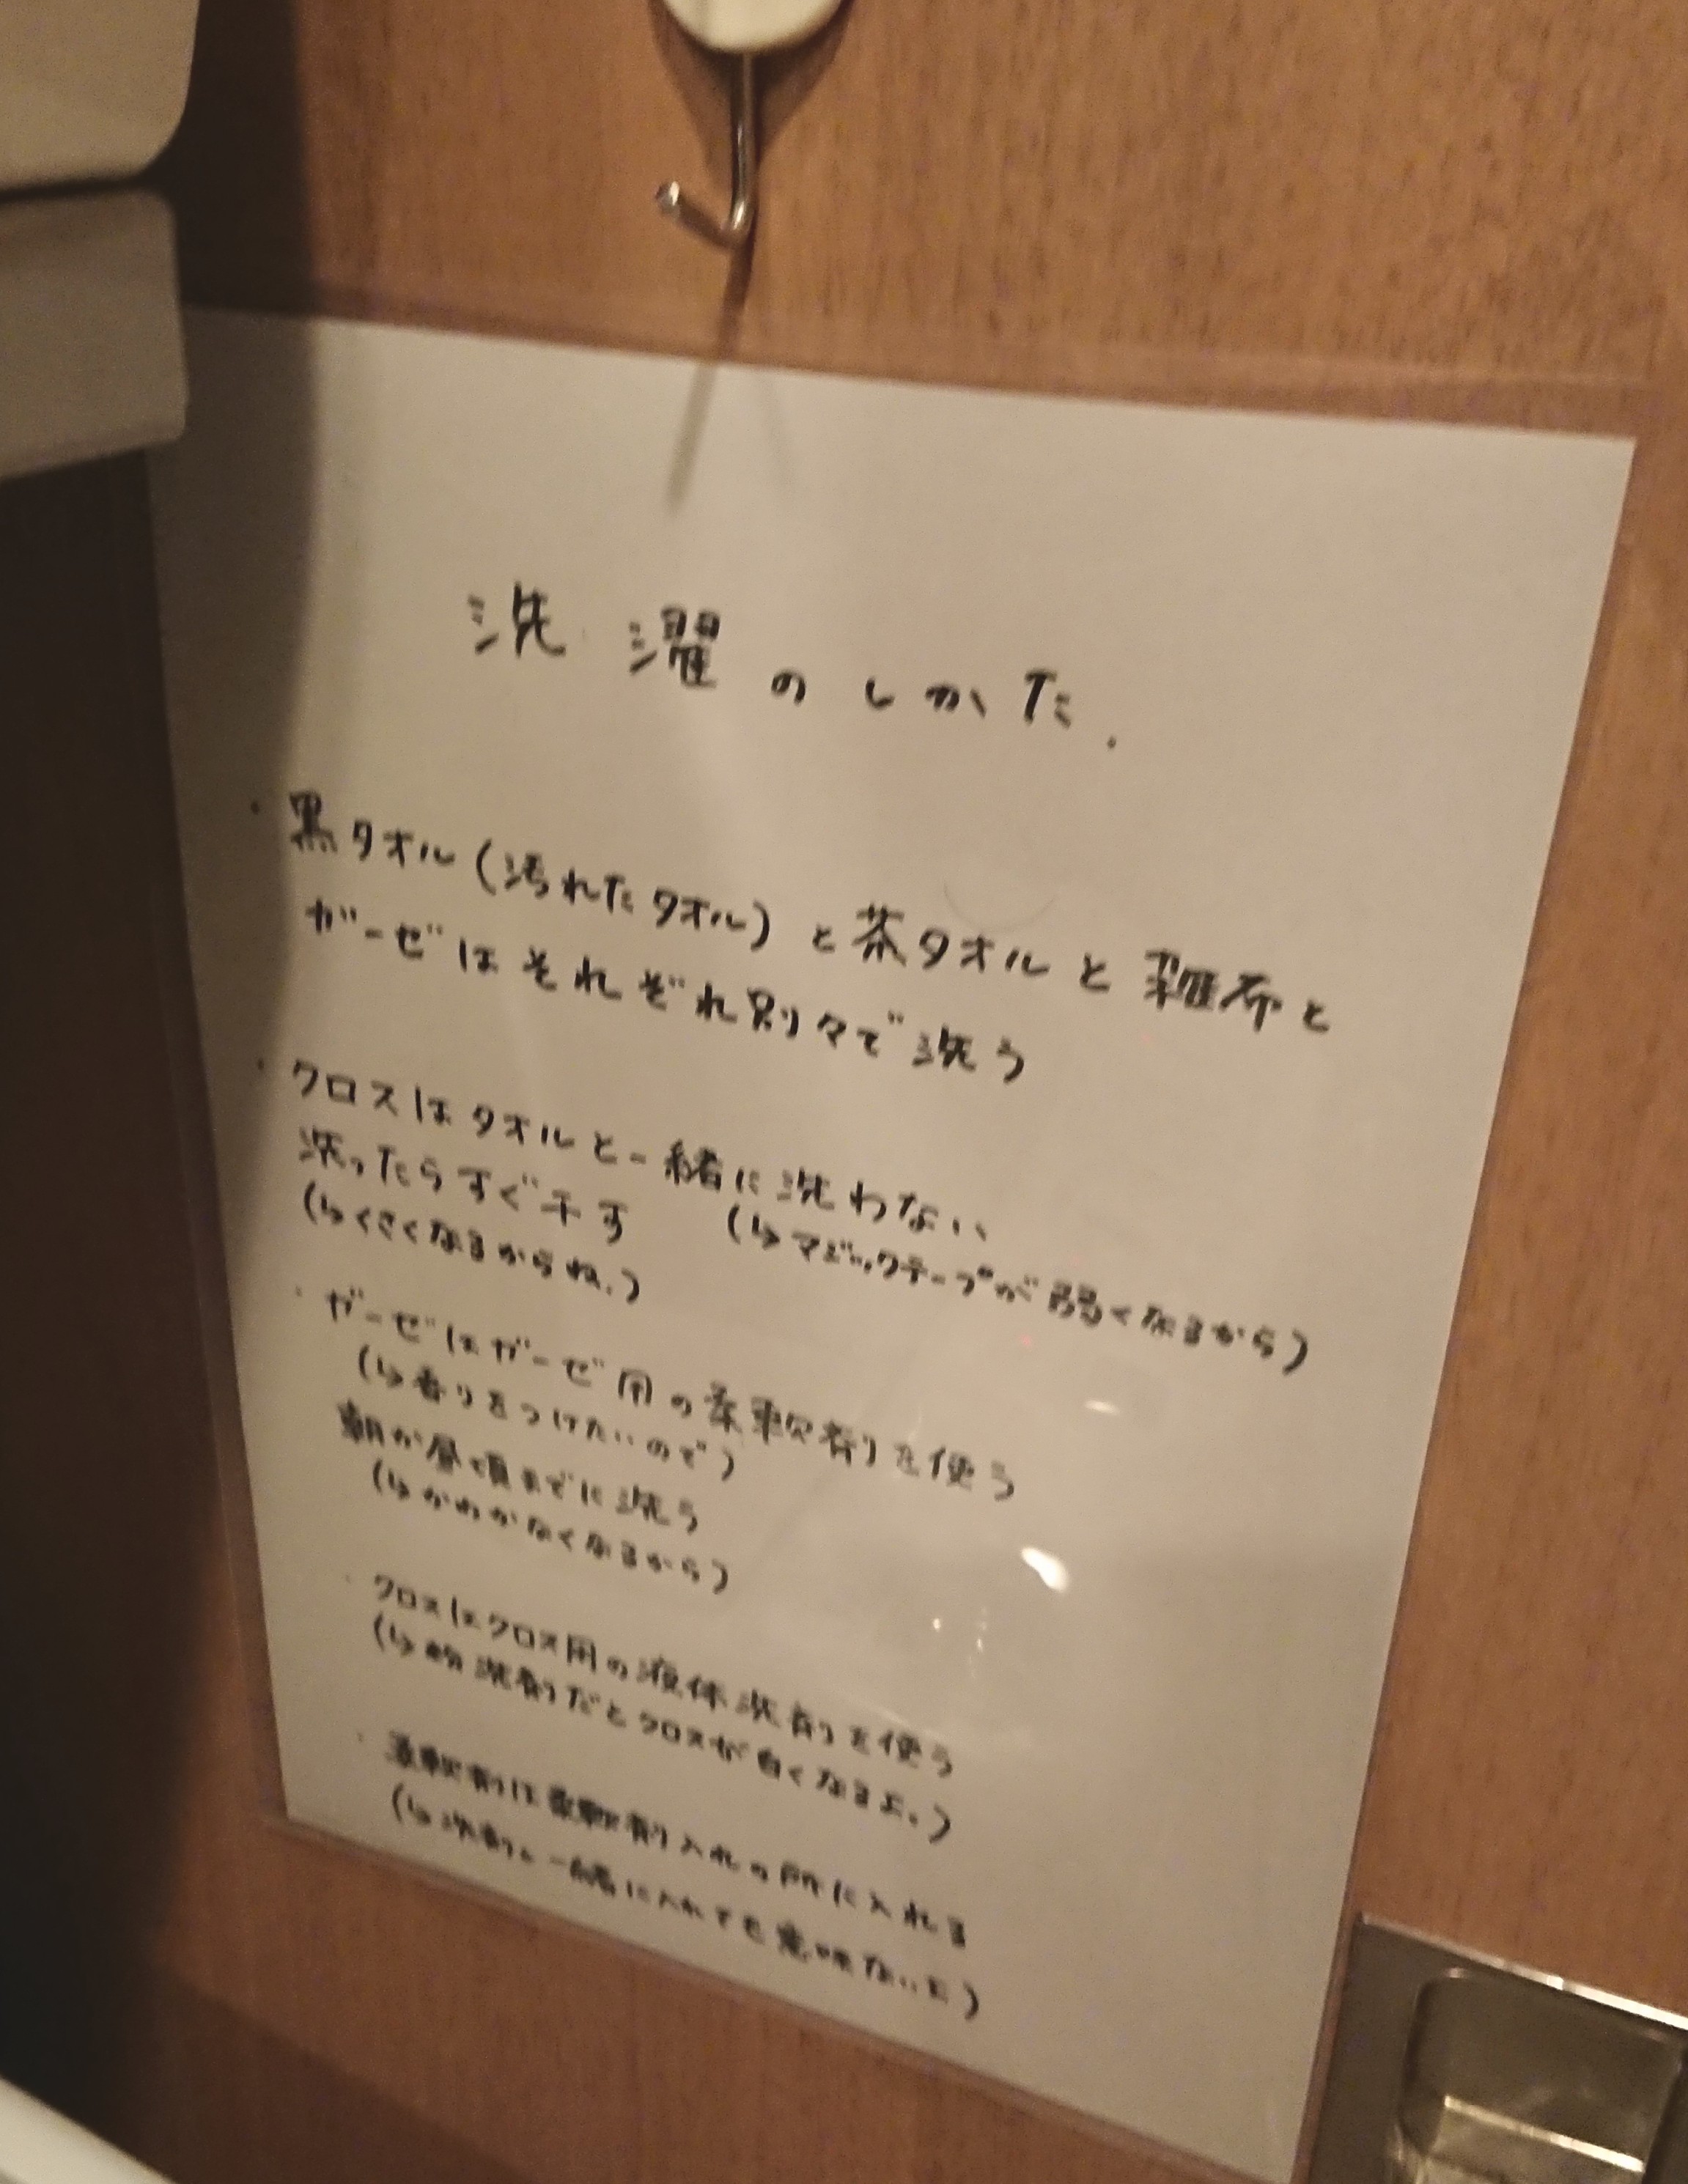 洗濯のしかた.
・黒タオル(汚れたタオル)と茶タオルと雑布と
ガーゼはそれぞれ別々で洗う
・クロスはタオルと一緒に洗わない
(↳マジックテープが弱くなるから)
洗ったらすぐ干す
(↳くさくなるからね.)
・ガーゼはガーゼ用の柔軟剤を使う
(↳香りをつけたいので)
朝か昼頃までに洗う
(↳かわかなくなるから)
・クロスはクロス用の液体洗剤を使う
(↳粉洗剤だとクロスが白くなるよ。)
・柔軟剤は柔軟剤入れの所に入れる
(↳洗剤と一緒に入れても意味ないよ)